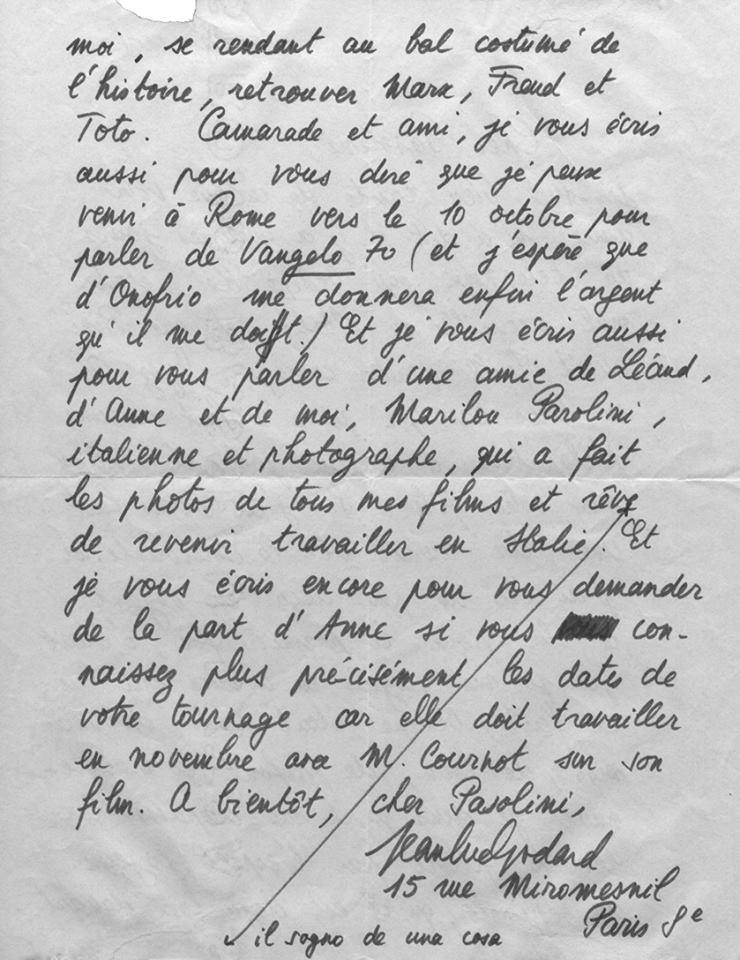 moi, se rendant au bal costumé de
l'histoire, retrouver Marx, Freud et
Toto. Camarade et ami, je vous écris
aussi pour vous dire que je peux
venir à Rome vers le 10 octobre pour
parler de Vangelo 70 (et j'espère que
d'Onofrio me donnera enfin l'argent
qu'il me doit.) Et je vous écris aussi
pour vous parler d'une amie de Léaud,
d'Anne et de moi, Marilou Parolini,
italienne et photographe, qui a fait
les photos de tous mes films et rêve
de revenir travailler en Italie. Et
je vous écris encore pour vous demander
de la part d'Anne si vous con-
naissez plus précisément les dates de
votre tournage car elle doit travailler
en novembre avec M. Cournot sur son
film. A bientôt, cher Pasolini,
JeanLucGodard
15 rue Miromesnil
Paris 8e
il sogno de una cosa